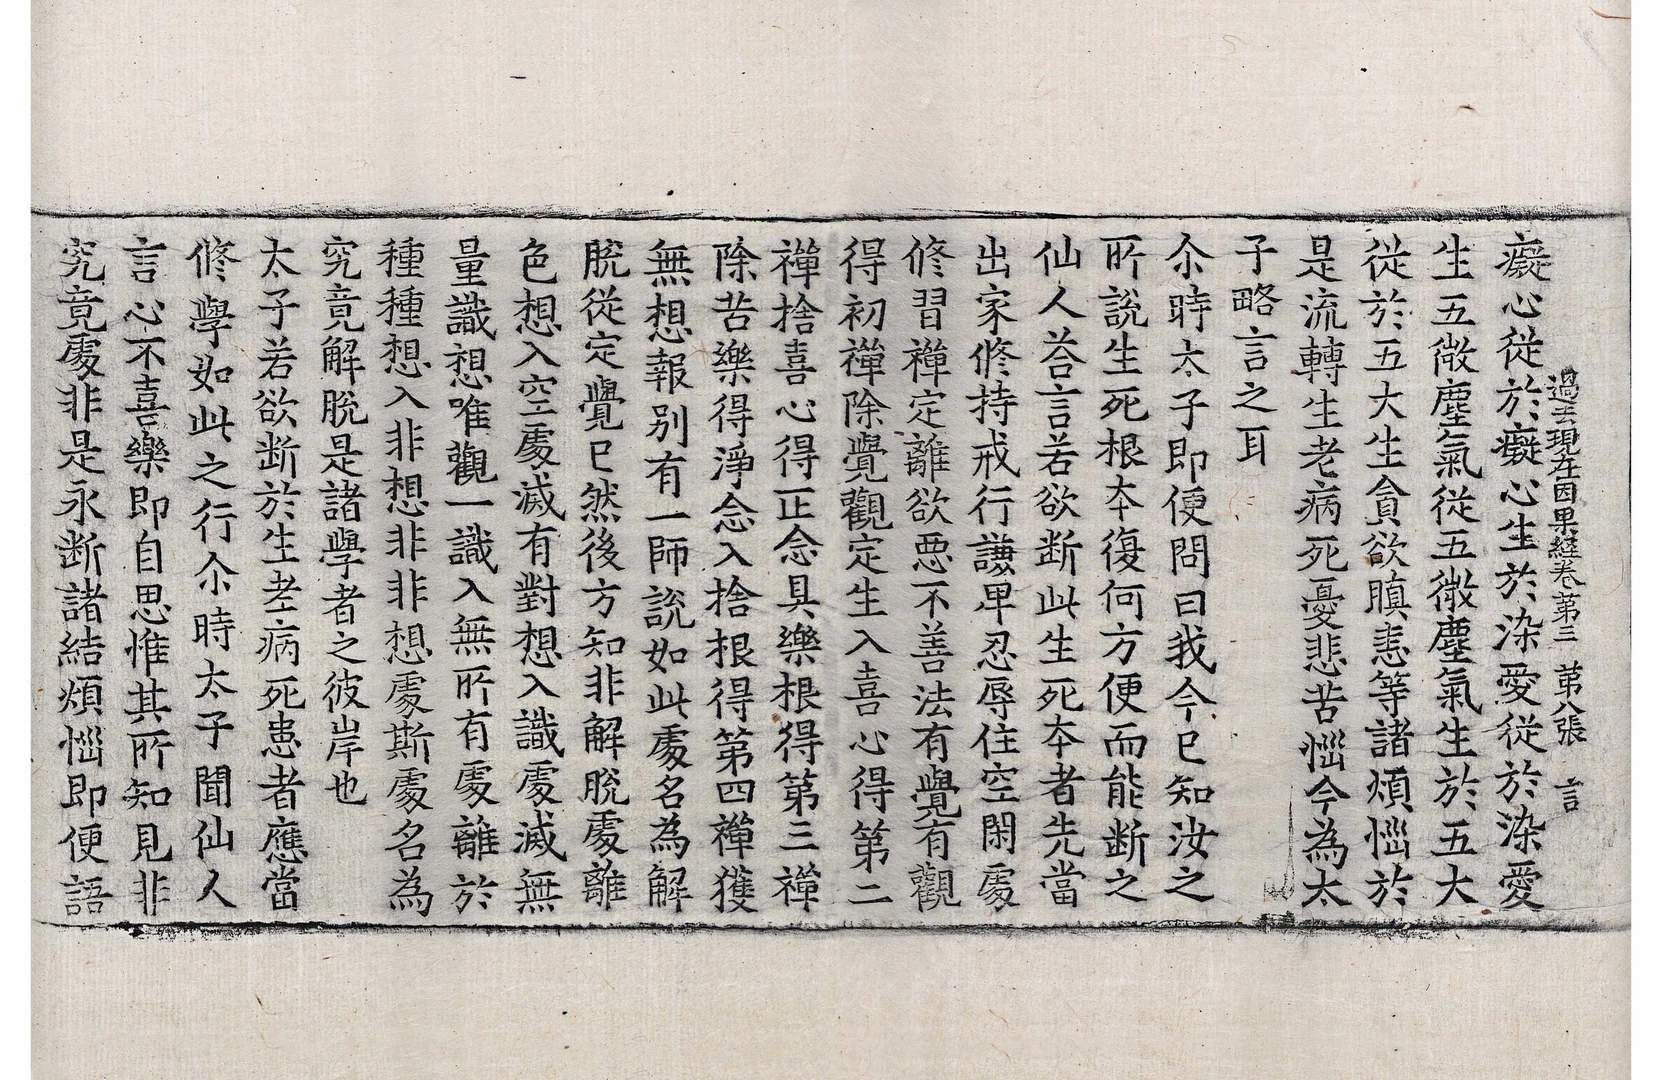 過去現在因果経卷第三　第八張　言
癡心從於癡心生於染愛從於染愛
生五㣲塵氣從五㣲塵氣生於五大
從於五大生貪欲瞋恚等諸煩惱於
是流轉生老病死憂悲苦惱今為太
子略言之耳
尒時太子即便問曰我今已知汝之
所說生死根本復何方便而能断之
仙人荅言若欲断此生死本者先當
出家修持戒行謙卑忍辱住空閑處
修習禪定離欲惡不善法有覺有觀
得初禪除覺觀定生入喜心得第二
禪捨喜心得正念具樂根得第三禪
除苦樂得淨念入捨根得第四禪獲
無想報別有一師說如此處名為解
脫從定覺已然後方知非解脫處離
色想入空處滅有對想入識處滅無
量識想唯觀一識入無所有處離於
種種想入非想非非想處斯處名為
究竟解脫是諸學者之彼岸也
太子若欲断於生老病死患者應當
修學如此之行尒時太子聞仙人
言心不喜樂即自思惟其所知見非
究竟處非是永断諸結煩惱即便語